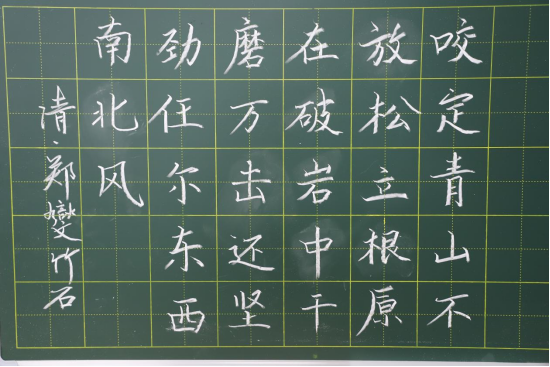 咬定青山不
放松立根原
在破岩中千
磨万击还坚
劲任尔东西
南北风
清·郑燮竹石